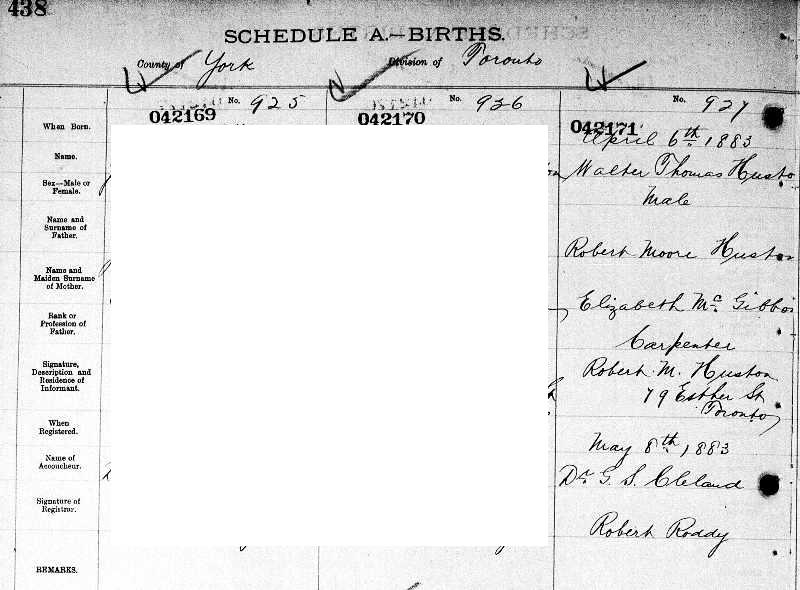 438
SCHEDULE A.—BIRTHS.
County of York
Division of Toronto
No. 925
No. 926
No. 927
042169
042170
042171
When Born.
April 6th 1883
Name.
Walter Thomas Husto
Sex—Male or
Female.
Male
Name and
Surname of
Father.
Robert Moore Huston
Name and
Maiden Surname
of Mother.
Elizabeth Mc Gibbo
Rank or
Profession of
Father.
Carpenter
Signature,
Description and
Residence of
Informant.
Robert. M. Huston
79 Esther St
Toronto
When
Registered.
May 8th, 1883
Name of
Accoucheur.
Dr. G. S. Cleland
Signature of
Registrar.
Robert Roddy
REMARKS.